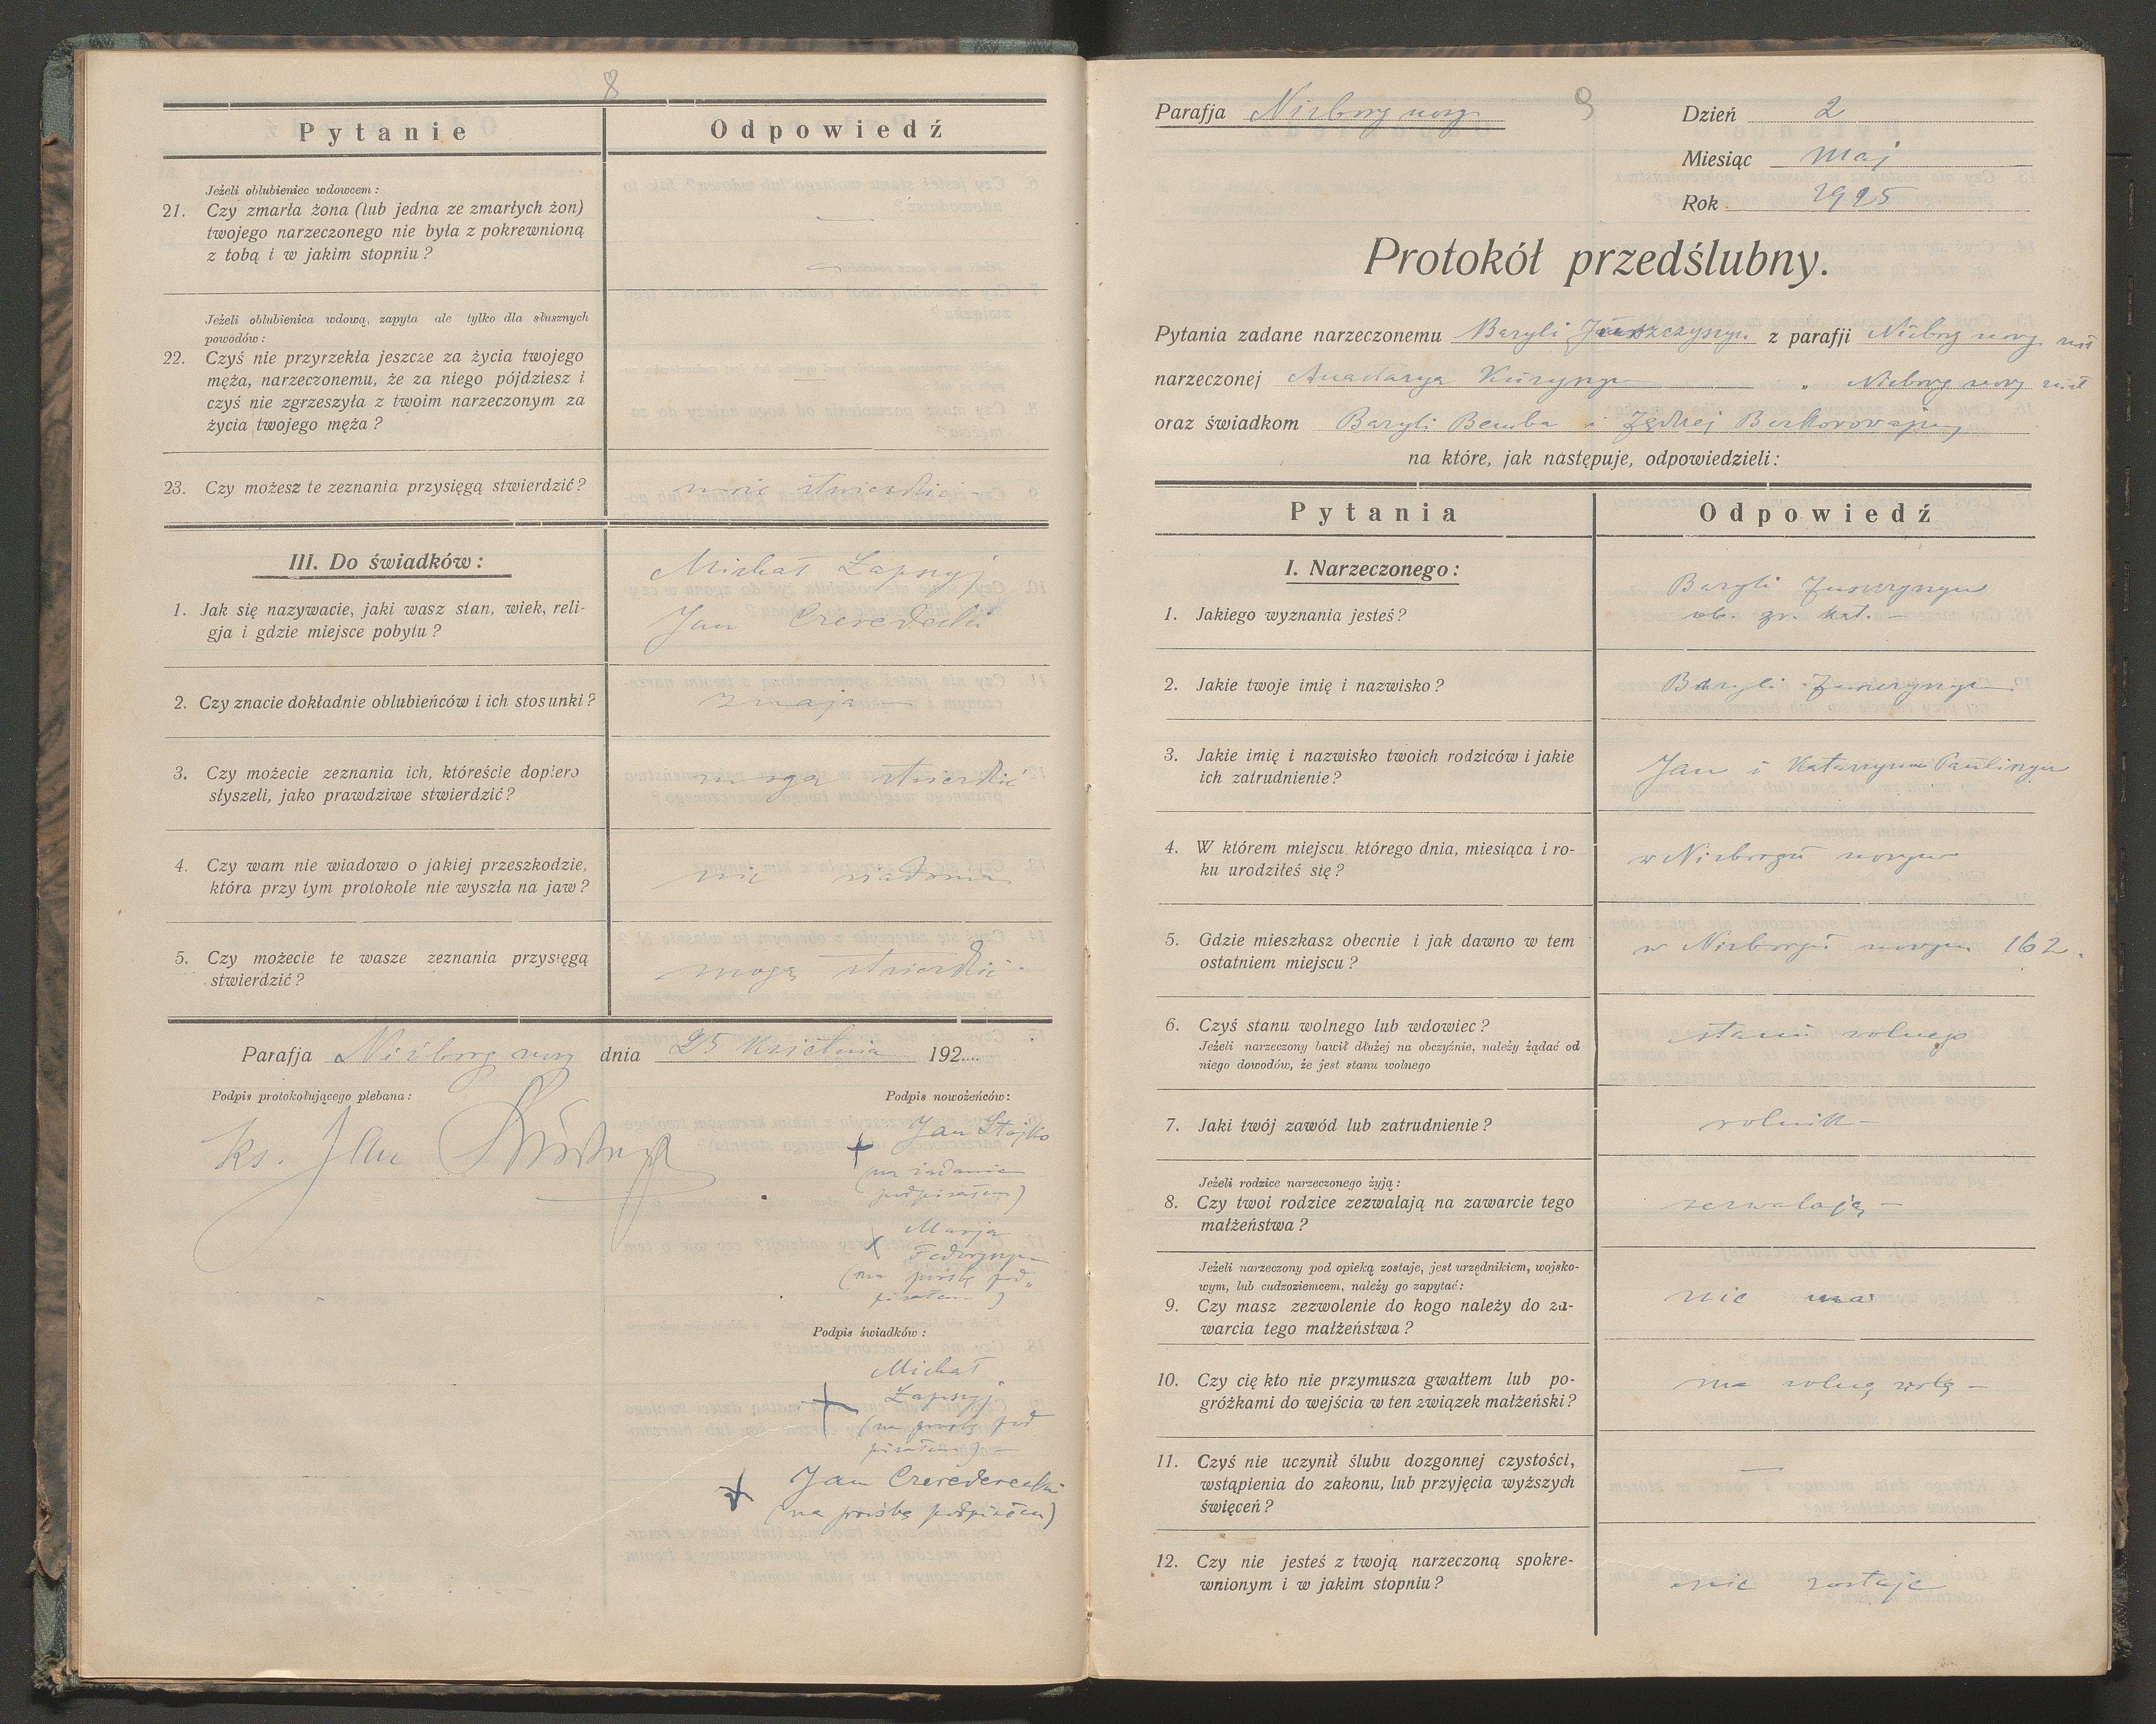 8
Pytanie
Odpowiedź
Jeżeli oblubieniec wdowcem:
21. Czy zmarła żona (lub jedna ze zmarłych żon)
twojego narzeczonego nie była z pokrewnioną
z tobą i w jakim stopniu?
—
Jeżeli oblubienica wdową, zapyta ale tylko dla słusznych
powodów:
22. Czyś nie przyrzekła jeszcze za życia twojego
męża, narzeczonemu, że za niego pójdziesz i
czyś nie zgrzeszyła z twoim narzeczonym za
życia twojego męża?
—
23. Czy możesz te zeznania przysięgą stwierdzić?
może stwierdzić —
III. Do świadków:
1. Jak się nazywacie, jaki wasz stan, wiek, reli-
gja i gdzie miejsce pobytu?
Michał Łapszyj
Jan
2. Czy znacie dokładnie oblubieńców i ich stosunki?
znają —
3. Czy możecie zeznania ich, któreście dopiero
słyszeli, jako prawdziwe stwierdzić?
mogą stwierdzić
4. Czy wam nie wiadowo o jakiej przeszkodzie,
która przy tym protokole nie wyszła na jaw?
nie wiadomo
5. Czy możecie te wasze zeznania przysięgą
stwierdzić?
mogą stwierdzić -
Parafja Niżborg nowy dnia 25 kwietnia 192....
Podpis protokołującego plebana:
Podpis nowożeńców:
ks. Jan
+ Jan Stojko
(na żądanie
podpisałem)
x Marja
Fedoryszyn
(na prośbę pod-
pisałem)
Podpis świadków:
Michał
+ Łapszyj
(na prośbę pod
pisałem) —
+ Jan
(na prośbę podpisałem)
Parafja Niżborg nowy
9
Dzień 2
Miesiąc Maj
Rok 1925
Protokół przedślubny.
Pytania zadane narzeczonemu Bazyli z parafji Niżborg nowy
narzeczonej Anastazya „ Niżborg nowy
oraz świadkom Bazyli Bemba i Jędrzej
na które, jak następuje, odpowiedzieli:
Pytania
Odpowiedź
I. Narzeczonego:
1. Jakiego wyznania jesteś?
Bazyli
ob. gr. kat. —
2. Jakie twoje imię i nazwisko?
Bazyli
3. Jakie imię i nazwisko twoich rodziców i jakie
ich zatrudnienie?
Jan i Katarzyna
4. W którem miejscu którego dnia, miesiąca i ro-
ku urodziłeś się?
w Niżborgu nowym
5. Gdzie mieszkasz obecnie i jak dawno w tem
ostatniem miejscu?
w Niżborgu nowym 162.
6. Czyś stanu wolnego lub wdowiec?
Jeżeli narzeczony bawił dłużej na obczyźnie, należy żądać od
niego dowodów, że jest stanu wolnego
stanu wolnego
7. Jaki twój zawód lub zatrudnienie?
rolnik —
Jeżeli rodzice narzeczonego żyją:
8. Czy twoi rodzice zezwalają na zawarcie tego
małżeństwa?
zezwalają —
Jeżeli narzeczony pod opieką zostaje, jest urzędnikiem, wojsko-
wym, lub cudzoziemcem, należy go zapytać:
9. Czy masz zezwolenie do kogo należy do za-
warcia tego małżeństwa?
nie ma
10. Czy cię kto nie przymusza gwałtem lub po-
gróżkami do wejścia w ten związek małżeński?
ma wolną wolę —
11. Czyś nie uczynił ślubu dozgonnej czystości,
wstąpienia do zakonu, lub przyjęcia wyższych
święceń?
—
12. Czy nie jesteś z twoją narzeczoną spokre-
wnionym i w jakim stopniu?
nie zostaje